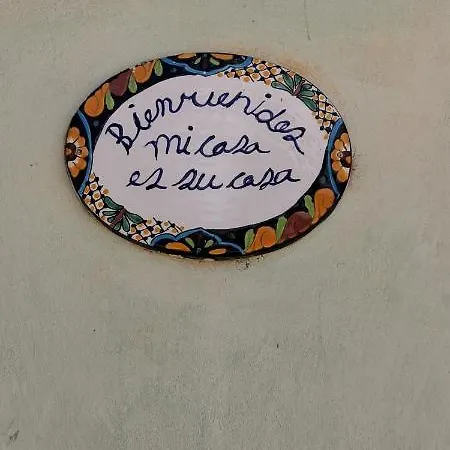 Bienvenidos
mi casa
es su casa